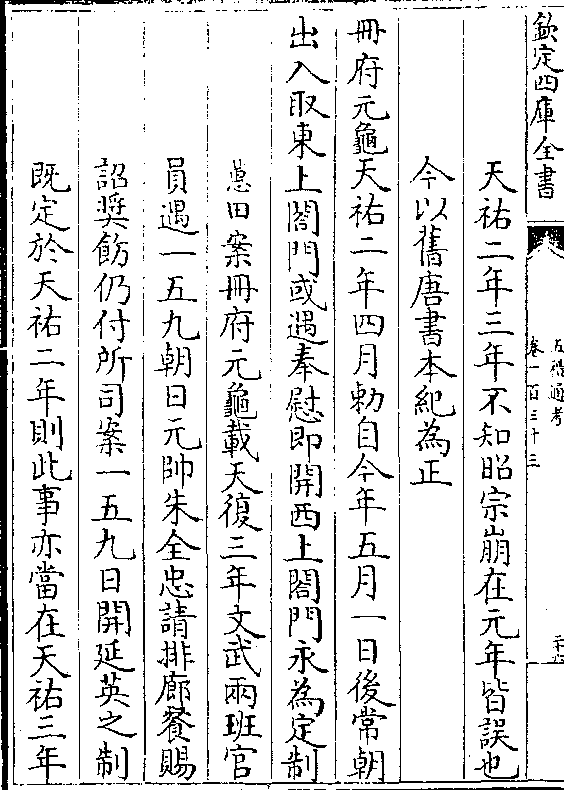 欽定四庫全書
五禮通考
卷一百三十三
天祐二年三年不知昭宗崩在元年皆誤也
今以舊唐書本紀為正
冊府元龜天祐二年四月勅自今年五月一日後常朝
出入取東上閤門或遇奉慰即開西上閤門永為定制
蕙田案冊府元龜載天復三年文武兩班官
員遇一五九朝日元帥朱全忠請排廊餐賜
詔奨飭仍付所司案一五九日開延英之制
既定於天祐二年則此事亦當在天祐三年